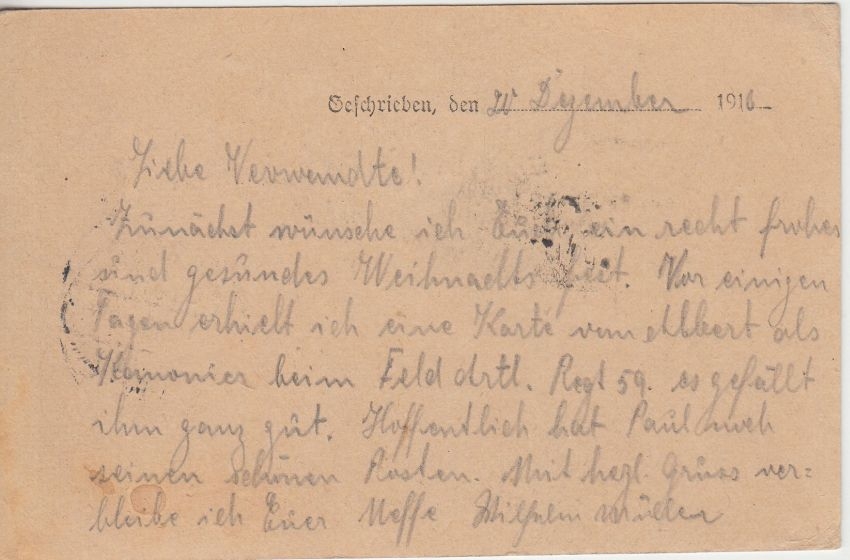 Geschrieben, den 20 Dezember 1916
Liebe Verwandte!
Zunächst wünsche ich Euch ein recht frohes
und gesundes Weihnachts fest. Vor einigen
Tagen erhielt ich eine Karte von Albert als
Kanonier beim Feld Artl. Regt 59. es gefällt
ihm ganz gut. Hoffentlich hat Paul noch
seinen schönen Posten. Mit hezl. Gruss ver=
bleibe ich Euer Neffe Wilhelm Müller